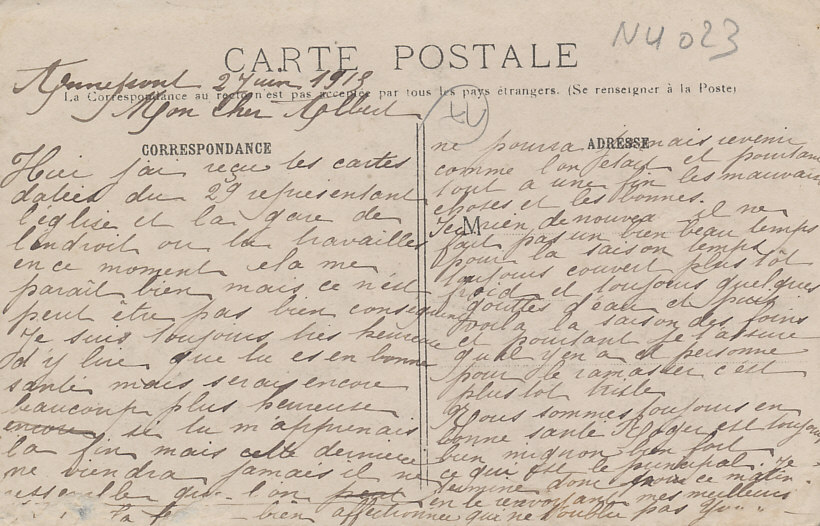 NU 023
CARTE POSTALE
2 Juin 1915
La Correspondance au recto n'est pas acceptée par tous les pays étrangers. (Se renseigner à la Poste)
Mon cher Albert
CORRESPONDANCE
Hier j'ai reçu tes cartes
datées du 29 representant
l'église et la gare de
l'endroit ou tu travailles
en ce moment cela me
parait bien mais ce n'est
peut être pas bien conséquent
Je suis toujours très heureuse
d'y lire que tu es en bonne
santé mais serais encore
beaucoup plus heureuse
encore si tu m'apprenais
la fin mais cette derniere
ne viendra jamais il ne
ressemble que l'on
bien affectionnée qui ne t'oublie pas
ADRESSE
M
ne pourra jamais revenir
comme l'on était et pourtant
tout a une fin les mauvaises
choses et les bonnes.
Ici rien de nouveau il ne
fait pas un bien beau temps
pour la saison temps
toujours couvert plus tôt
froid et toujours quelques
gouttes d'eau et puis
voila la saison des foins
et pourtant je t'assure
qu'il y en a et personne
pour le ramasser c'est
plus tôt triste
Nous sommes toujours en
bonne santé Roger est toujours
bien mignon bien fort
ce qui est le principal. Je
termine donc ce matin
en te envoyant mes meilleurs